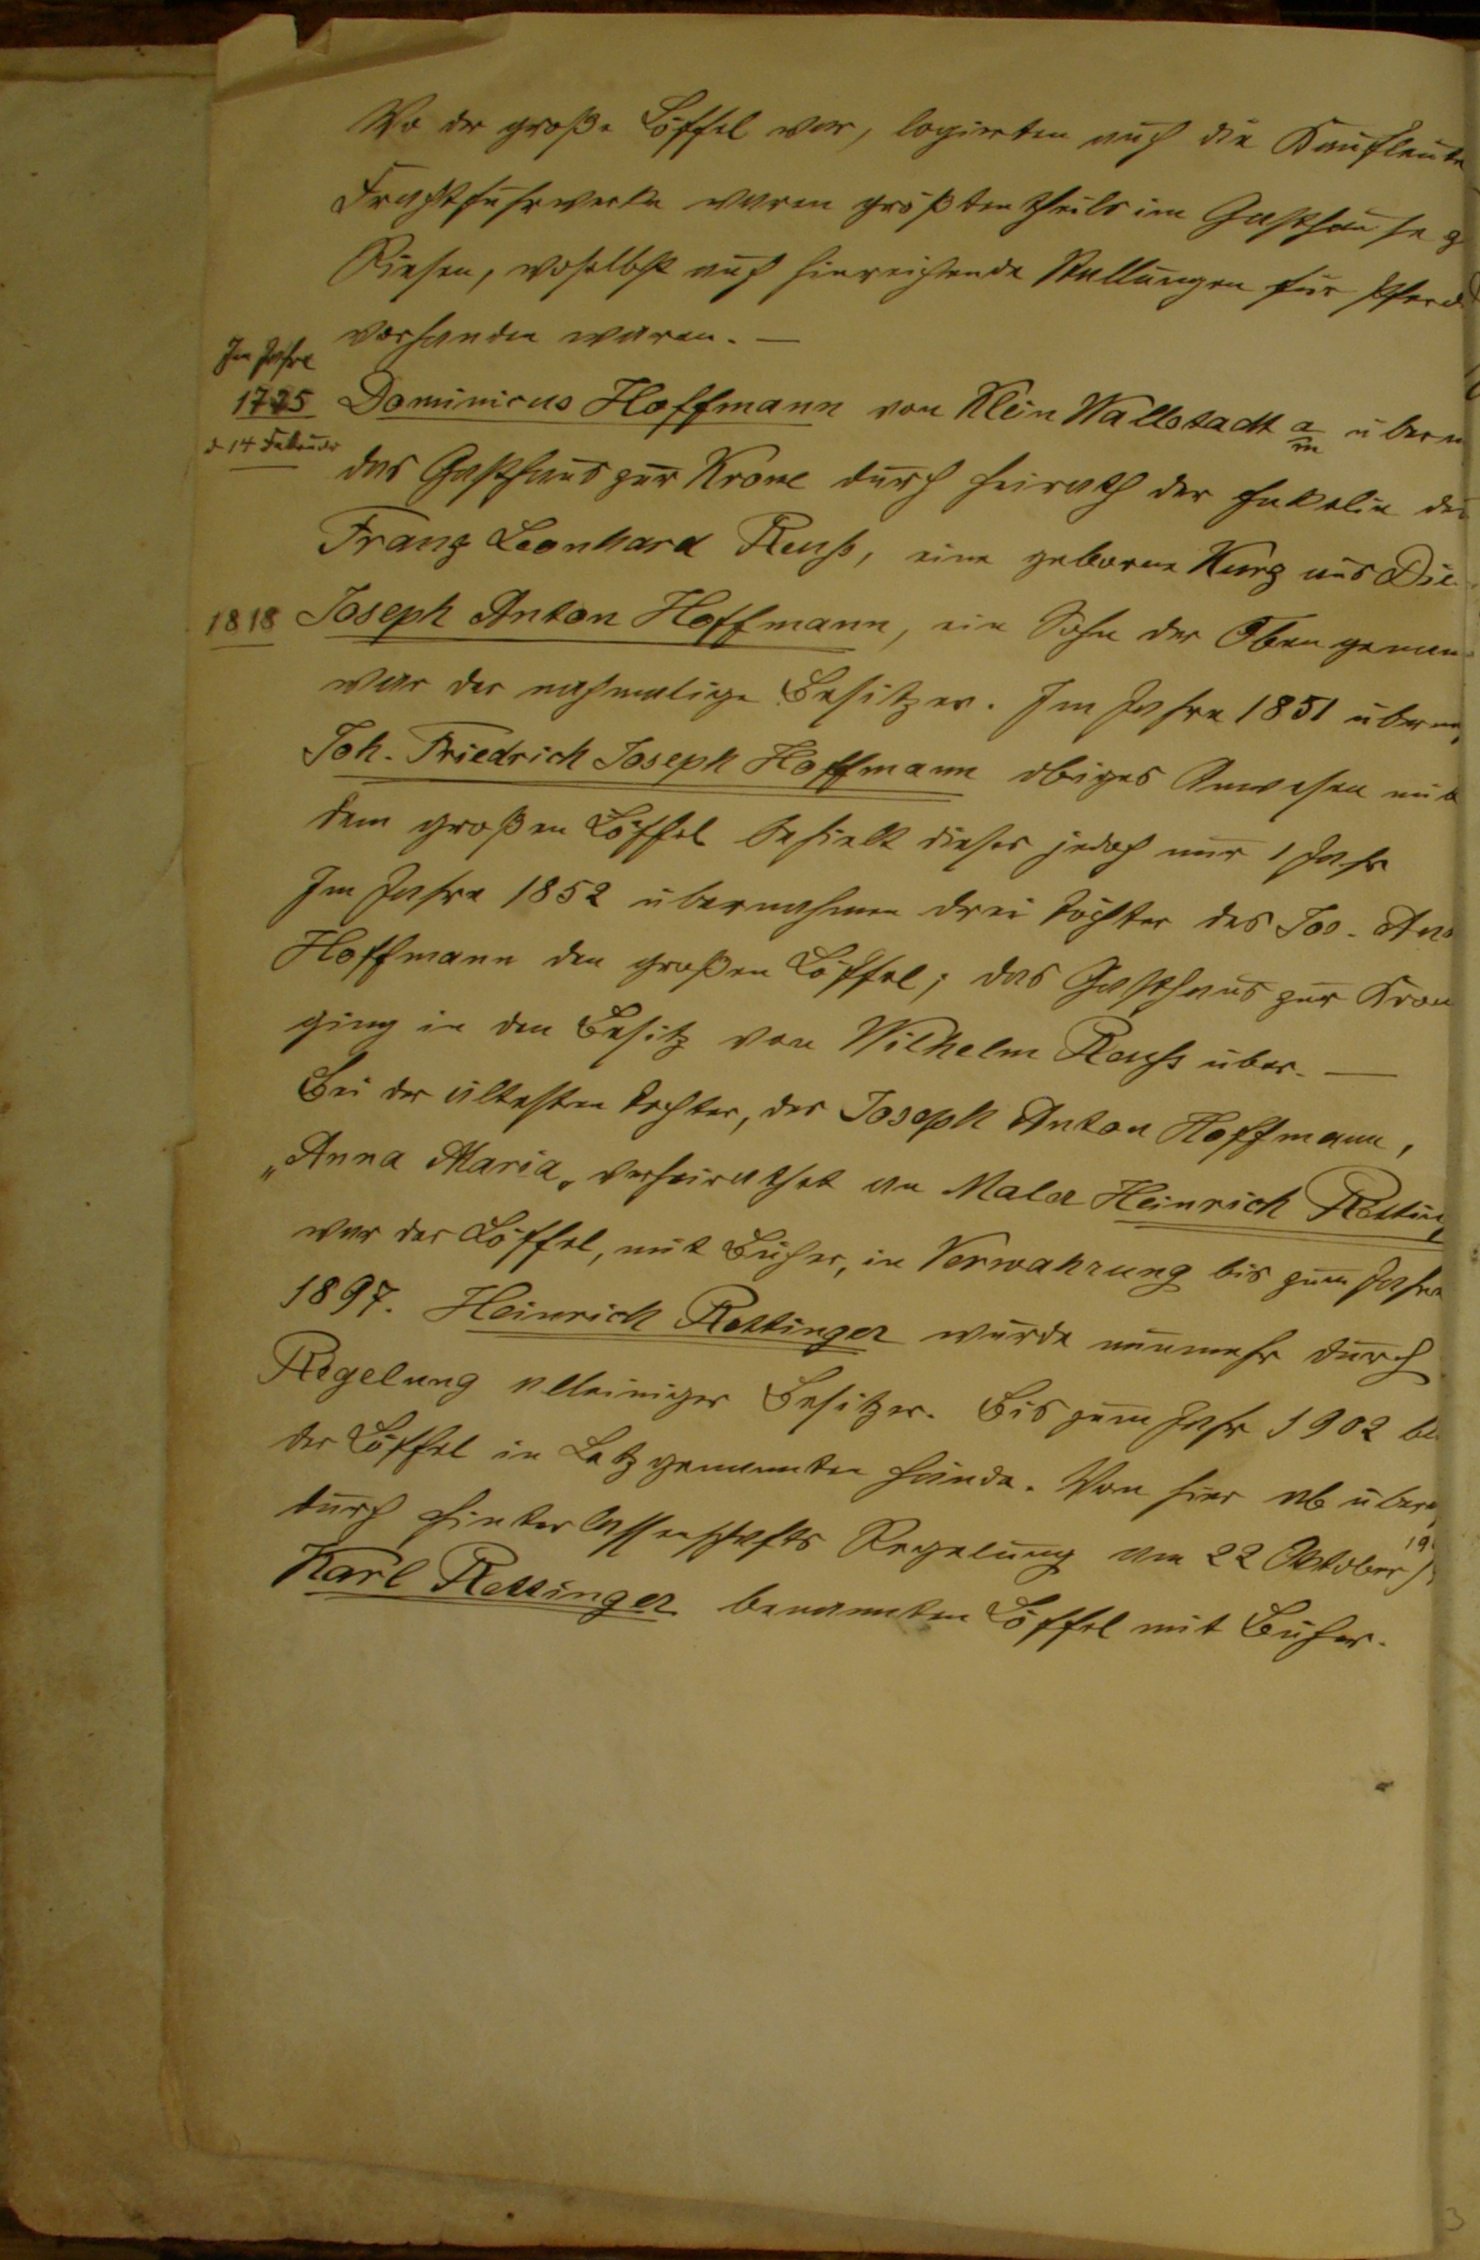 Wo der große Löffel war, logierten auch die Kaufleute
Frachtfuhrwerke waren größtentheils im Gasthause z
Riesen, woselbst auch hinreichende Stallungen für Pferd
vorhanden waren. —
Im Jahre
1775 Dominicus Hoffmann von Klein Wallstadt a/m übern
d. 14 Februar
das Gasthaus zur Krone durch Heirath der Enkelin des
Franz Leonhard Reuß, eine geborne Kurz aus Die
1818 Joseph Anton Hoffmann, ein Sohn der Obengenan
war der nachmalige Besitzer. Im Jahre 1851 überna
Joh. Friedrich Joseph Hoffmann obiges Anwesen mit
dem großen Löffel behielt dieses jedoch nur 1 Jahr
Im Jahre 1852 übernahmen drei Töchter des Jos. Ant
Hoffmann den großen Löffel; das Gasthaus zur Kron
ging in den Besitz von Wilhelm Reuß über. —
Bei der ältesten Tochter, des Joseph Anton Hoffmann,
„Anna Maria„ verheirathet an Maler Heinrich Retting
war der Löffel, mit Bücher, in Verwahrung bis zum Jahre
1897. Heinrich Rettinger wurde nunmehr durch
Regelung alleiniger Besitzer. Bis zum Jahr 1902 bl
der Löffel in Letzgenannten Hände. Von hier ab übern
durch Hinterlassenschafts Regelung am 22 Oktober 19
Karl Rettinger benannten Löffel mit Bücher.
3